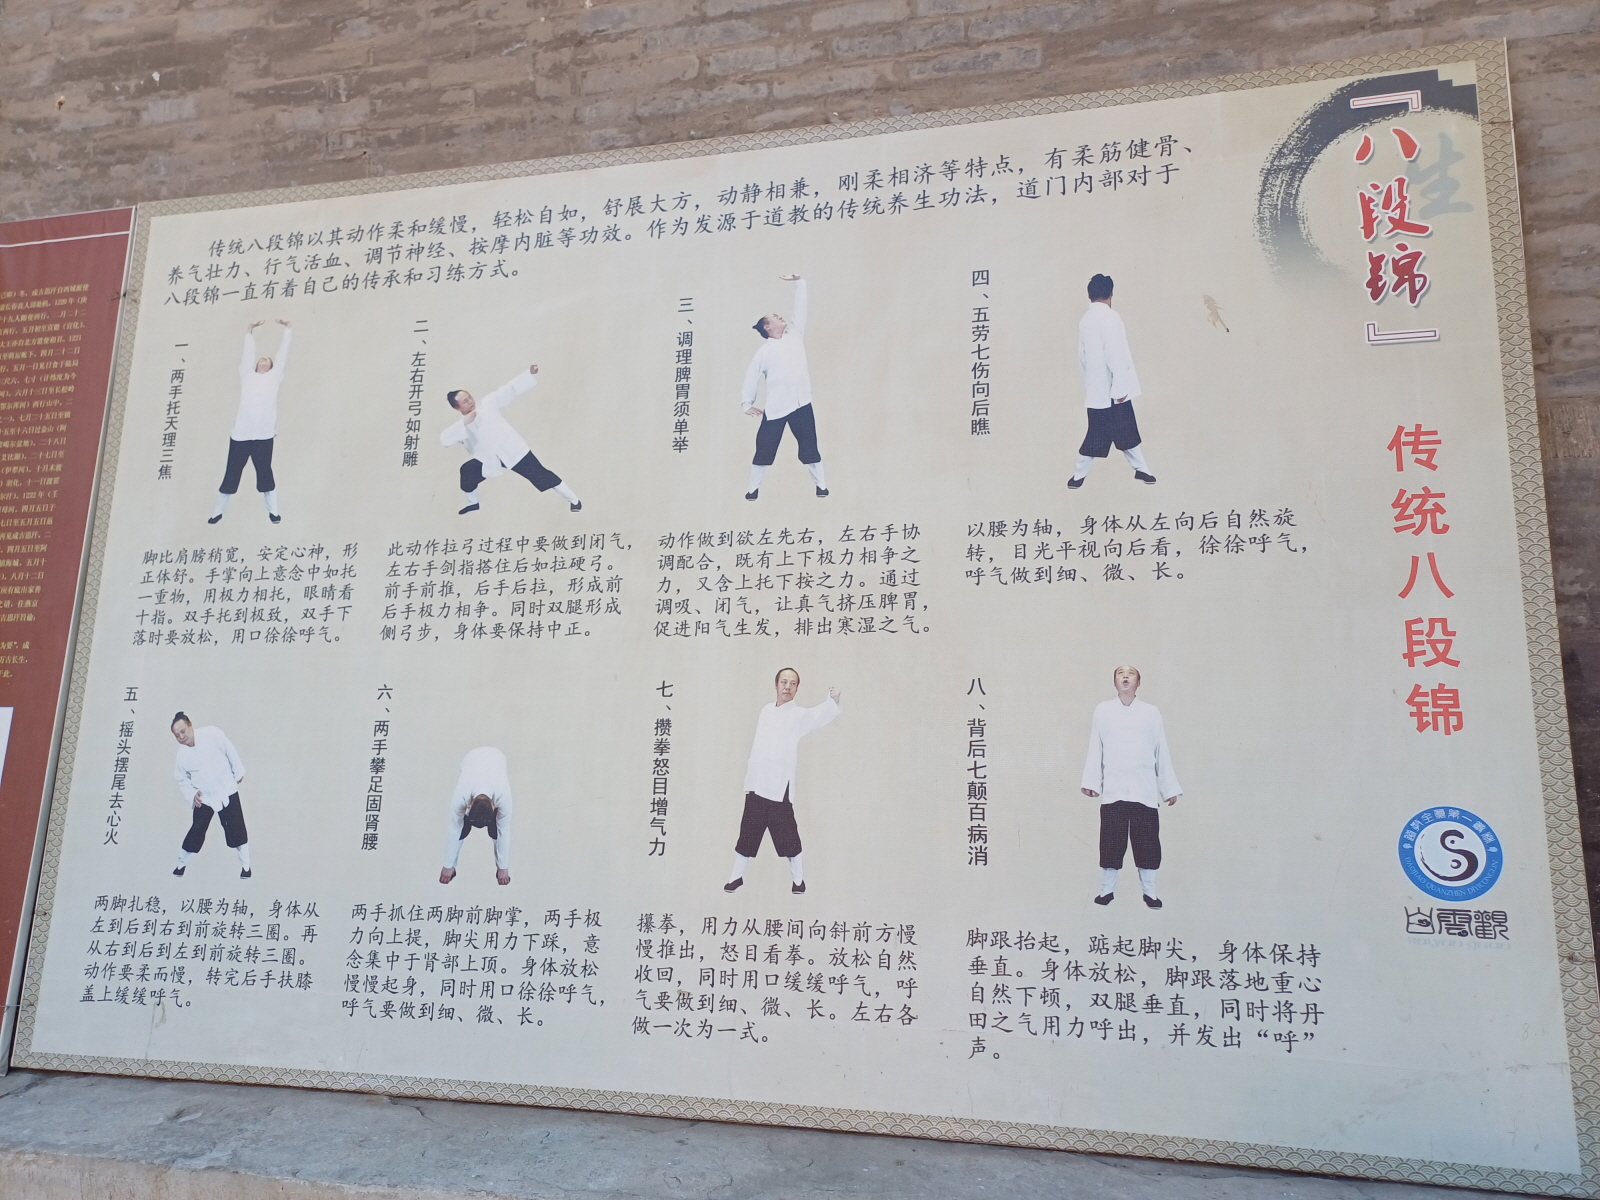 『八段锦』
生
传统八段锦
传统八段锦以其动作柔和缓慢，轻松自如，舒展大方，动静相兼，刚柔相济等特点，有柔筋健骨、
养气壮力、行气活血、调节神经、按摩内脏等功效。作为发源于道教的传统养生功法，道门内部对于
八段锦一直有着自己的传承和习练方式。
一、两手托天理三焦
脚比肩膀稍宽，安定心神，形
正体舒。手掌向上意念中如托
一重物，用极力相托，眼睛看
十指。双手托到极致，双手下
落时要放松，用口徐徐呼气。
二、左右开弓如射雕
此动作拉弓过程中要做到闭气，
左右手剑指搭住后如拉硬弓。
前手前推，后手后拉，形成前
后手极力相争。同时双腿形成
侧弓步，身体要保持中正。
三、调理脾胃须单举
动作做到欲左先右，左右手协
调配合，既有上下极力相争之
力，又含上托下按之力。通过
调吸、闭气，让真气挤压脾胃，
促进阳气生发，排出寒湿之气。
四、五劳七伤向后瞧
以腰为轴，身体从左向后自然旋
转，目光平视向后看，徐徐呼气，
呼气做到细、微、长。
五、摇头摆尾去心火
两脚扎稳，以腰为轴，身体从
左到后到右到前旋转三圈。再
从右到后到左到前旋转三圈。
动作要柔而慢，转完后手扶膝
盖上缓缓呼气。
六、两手攀足固肾腰
两手抓住两脚前脚掌，两手极
力向上提，脚尖用力下踩，意
念集中于肾部上顶。身体放松
慢慢起身，同时用口徐徐呼气，
呼气要做到细、微、长。
七、攒拳怒目增气力
攥拳，用力从腰间向斜前方慢
慢推出，怒目看拳。放松自然
收回，同时用口缓缓呼气，呼
气要做到细、微、长。左右各
做一次为一式。
八、背后七颠百病消
脚跟抬起，踮起脚尖，身体保持
垂直。身体放松，脚跟落地重心
自然下顿，双腿垂直，同时将丹
田之气用力呼出，并发出“呼”
声。
白雲觀